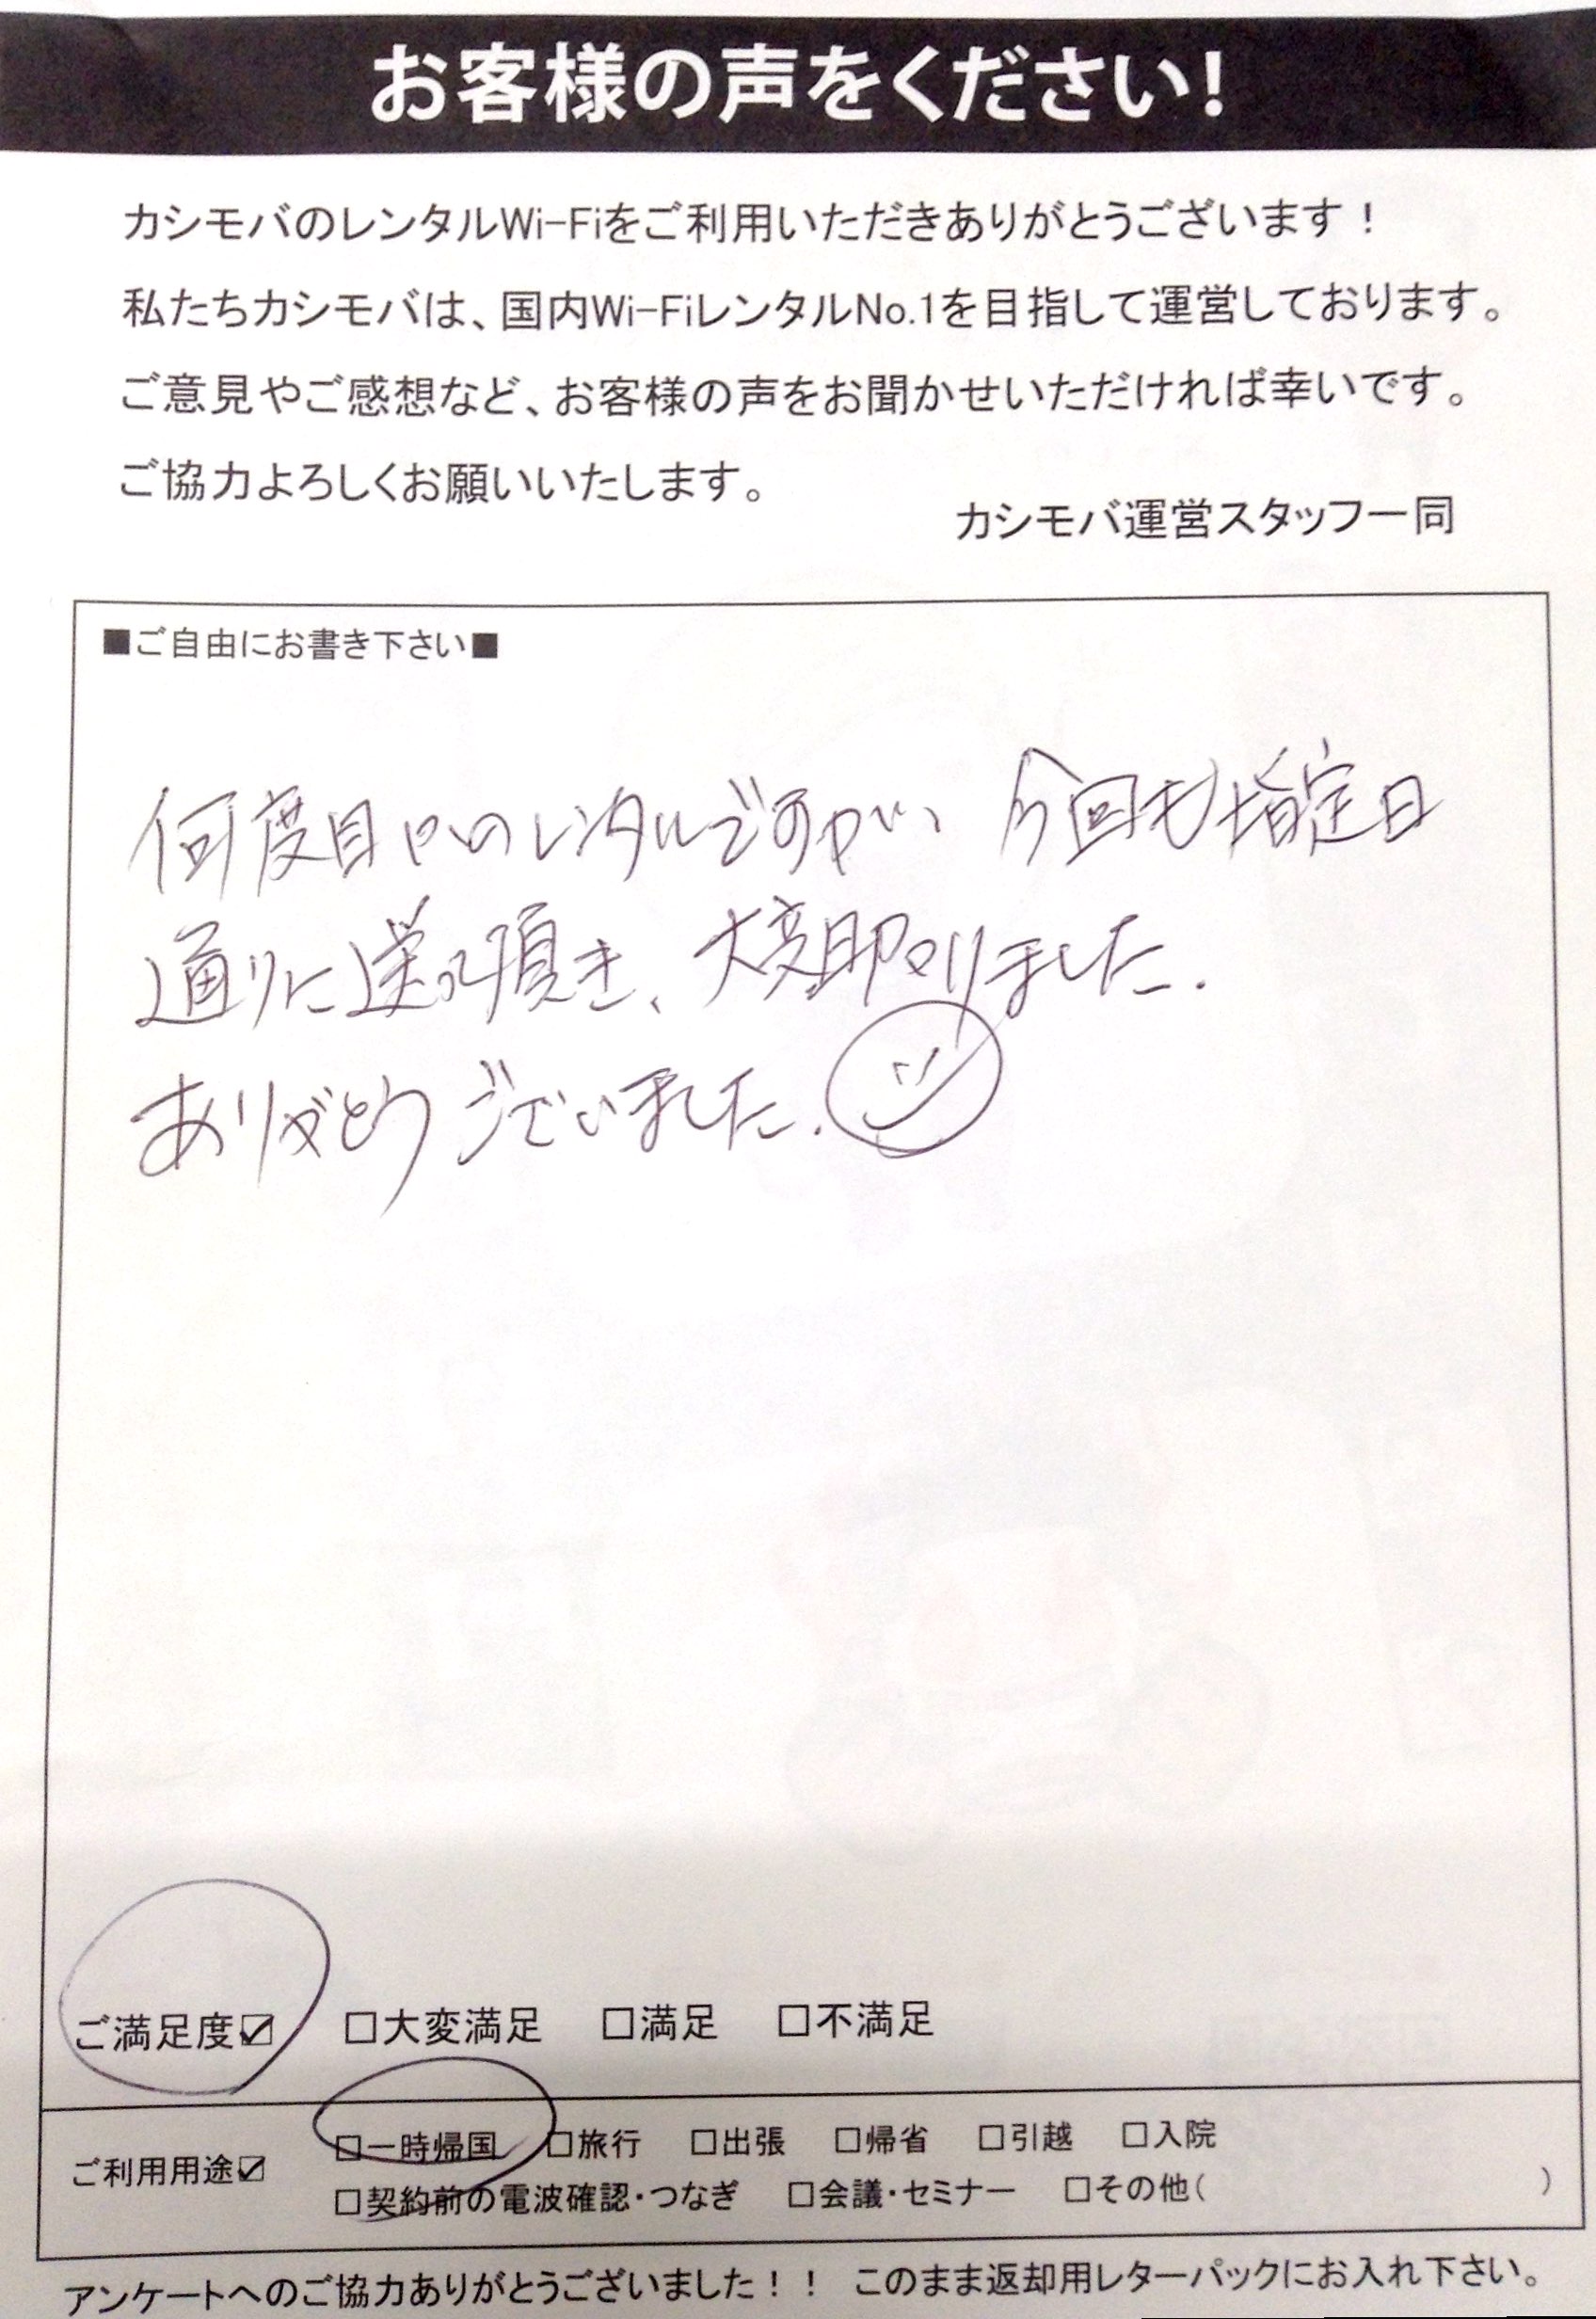 お客様の声をください!
カシモバのレンタルWi-Fiをご利用いただきありがとうございます！
私たちカシモバは、国内Wi-FiレンタルNo.1を目指して運営しております。
ご意見やご感想など、お客様の声をお聞かせいただければ幸いです。
ご協力よろしくお願いいたします。
カシモバ運営スタッフ一同
■ご自由にお書き下さい■
何度目かのレンタルですが、今回も指定日
通りに送って頂き、大変助かりました.
ありがとうございました.
ご満足度☑ □大変満足 □満足 □不満足
ご利用用途☑ □一時帰国 □旅行 □出張 □帰省 □引越 □入院
□契約前の電波確認・つなぎ □会議・セミナー □その他( )
アンケートへのご協力ありがとうございました！！ このまま返却用レターパックにお入れ下さい。